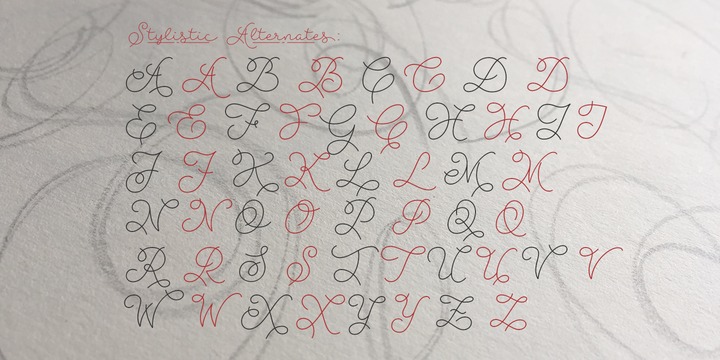 Stylistic Alternates:
A A B B C C D D
E E F F G G H H I I
J J K K L L M M
N N O O P P Q Q
R R S S T T U U V V
W W X X Y Y Z Z